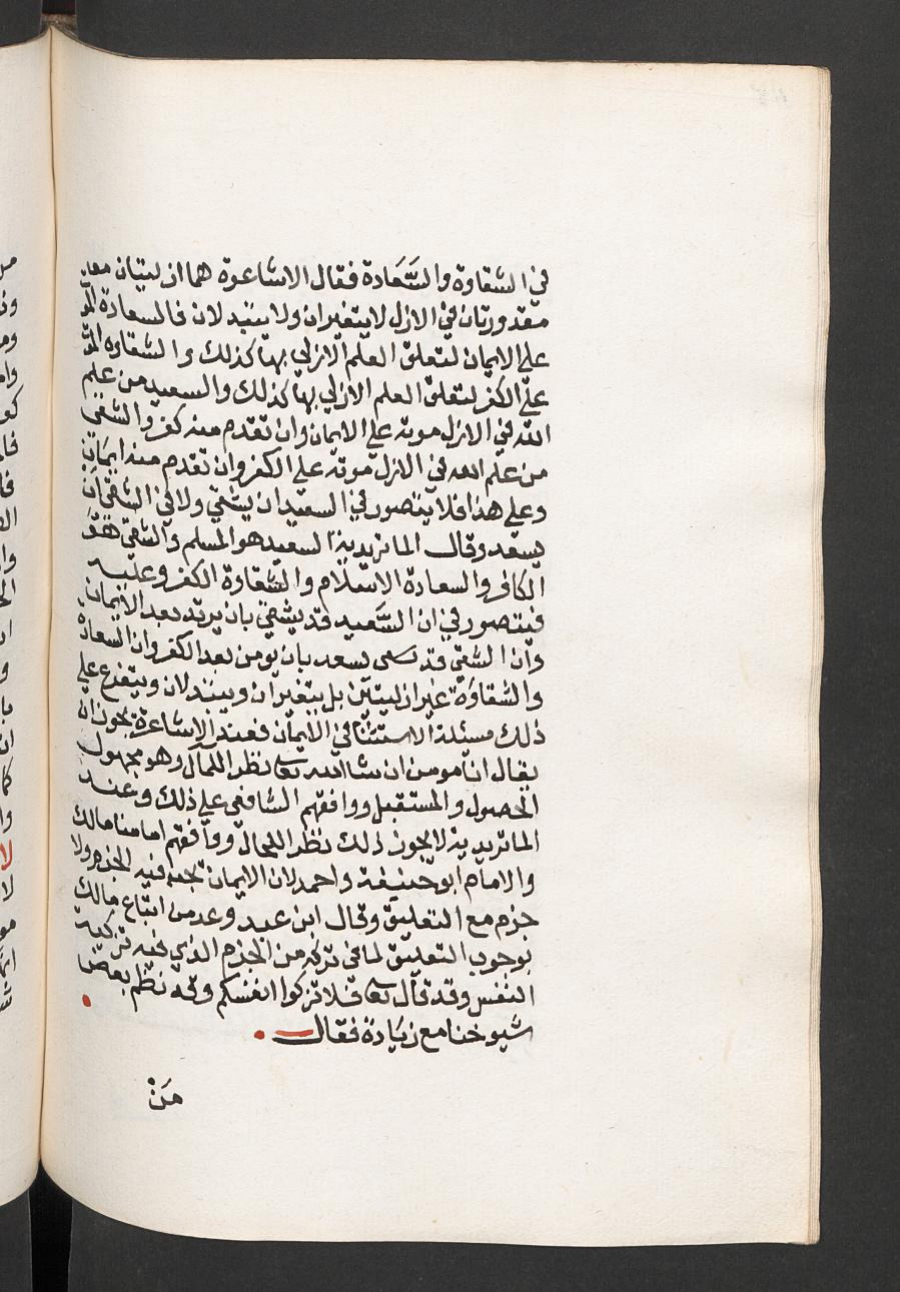 في الشقاوة والسَّعَادة فقال الاشاعرة هما ازليتان
مقدورتان في الازل لا يتغيران ولا يتبدلان فالسعادة المو
على الايمان لتعلق العلم الازلي بها كذلك والشقاوه المو
على الكفر لتعلق العلم الازلي بها كذلك والسعيد من علم
الله في الازل موته على الايمان وان تقدم منه كفر والشقي
من علم الله في الازل موته على الكفر وان تقدم منه ايمان
وعلى هذا فلا يتصور في السعيد ان يشقي ولا في الشقي ان
يسعد وقال الماتريدية السعيد هو المسلم والشقي هو
الكافر والسعادة الاسلام والشقاوة الكفر وعليه
فيتصور في ان السَّعيد قد يشقي بان يرتد بعد الايمان
وان الشقي قد يسعد بان يومن بعد الكفر وان السعادة
والشقاوة غير ازليتين بل يتغيران ويتبدلان ويتفرع على
ذلك مسئلة الاستثنا في الايمان فعند الاشاعرة يجوز ان
يقال انا مومن ان شا الله تعا نظر اللمال وهو مجهول
الحصول والمستقبل ووافقهم الشافعي على ذلك وعند
الماتريدية لا يجوز ذلك نظر اللحال ووافقهم امامنا مالك
والامام ابو حنيفة واحمد لان الايمان يجب فيه الجزم ولا
جزم مع التعليق وقال ابن عبد وعد من اتباع مالك
بوجوب التعليق لما في تركه من الجزم الذي فيه تزكية
النفس وقد قال تعا فلا تزكوا انفسكم وقد نظم بعض
شيوخنا مع زيادة فقال
من